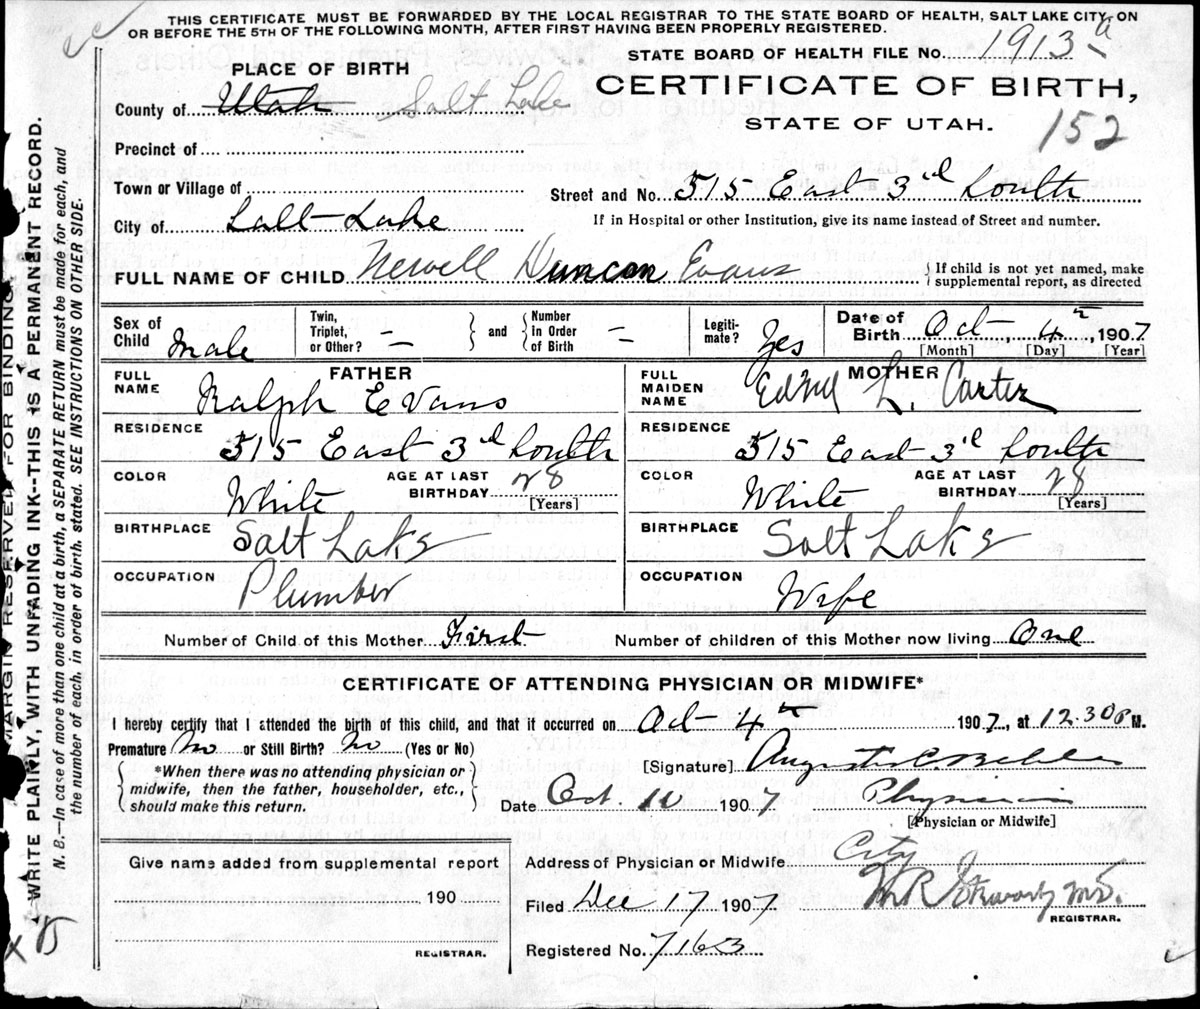 THIS CERTIFICATE MUST BE FORWARDED BY THE LOCAL REGISTRAR TO THE STATE BOARD OF HEALTH, SALT LAKE CITY, ON
OR BEFORE THE 5TH OF THE FOLLOWING MONTH, AFTER FIRST HAVING BEEN PROPERLY REGISTERED.
STATE BOARD OF HEALTH FILE NO. 1913 a
PLACE OF BIRTH
CERTIFICATE OF BIRTH,
County of Utah Salt Lake
STATE OF UTAH.
152
Precinct of
Town or Village of
Street and No. 515 East 3rd South
City of Salt Lake
If in Hospital or other Institution, give its name instead of Street and number.
FULL NAME OF CHILD Newell Duncan Evans
If child is not yet named, make supplemental report, as directed
Sex of Child Male
Twin, Triplet, or Other? —
and
Number In Order of Birth —
Legitimate? Yes
Date of Birth Oct 4th, 1907
[Month] [Day] [Year]
FATHER
FULL NAME Ralph Evans
RESIDENCE 515 East 3rd South
COLOR White
AGE AT LAST BIRTHDAY 28
[Years]
BIRTHPLACE Salt Lake
OCCUPATION Plumber
MOTHER
FULL MAIDEN NAME L. Carter
RESIDENCE 515 East 3rd South
COLOR White
AGE AT LAST BIRTHDAY 28
[Years]
BIRTHPLACE Salt Lake
OCCUPATION Wife
Number of Child of this Mother First
Number of children of this Mother now living One
CERTIFICATE OF ATTENDING PHYSICIAN OR MIDWIFE*
I hereby certify that I attended the birth of this child, and that it occurred on Oct 4th 1907, at 12.30 P M.
Premature No or Still Birth? No (Yes or No)
*When there was no attending physician or
midwife, then the father, householder, etc.,
should make this return.
[Signature] C.
Date Oct. 10 1907
Physician
[Physician or Midwife]
Give name added from supplemental report
190
REGISTRAR.
Address of Physician or Midwife City
Filed Dec 17 1907
REGISTRAR.
Registered No. 7163
MARGIN RESERVED FOR BINDING
WRITE PLAINLY, WITH UNFADING INK--THIS IS A PERMANENT RECORD.
N. B.—In case of more than one child at a birth, a SEPARATE RETURN must be made for each, and
the number of each, in order of birth, stated. SEE INSTRUCTIONS ON OTHER SIDE.